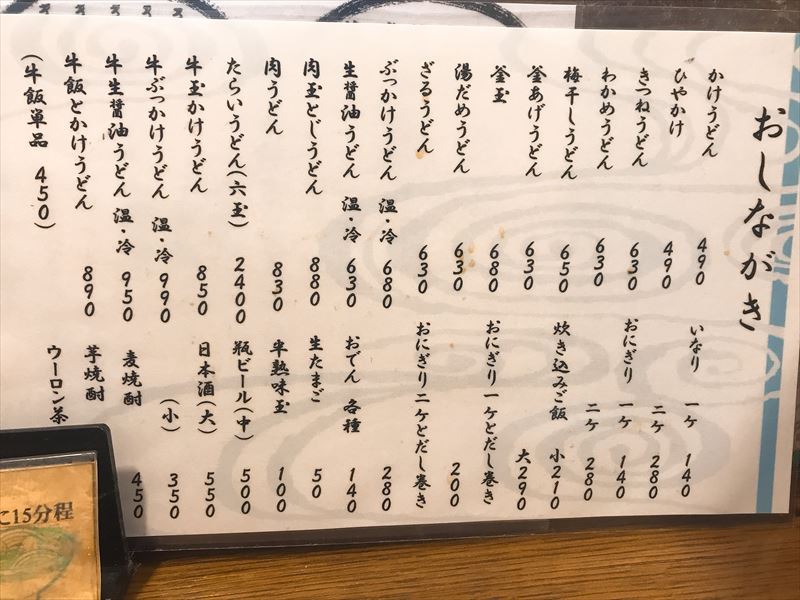 おしながき
かけうどん 490
ひやかけ 490
きつねうどん 630
わかめうどん 630
梅干しうどん 650
釜あげうどん 630
釜玉 680
湯だめうどん 630
ざるうどん 630
ぶっかけうどん 温・冷 680
生醤油うどん 温・冷 630
肉玉とじうどん 880
肉うどん 830
たらいうどん(六玉) 2400
牛玉かけうどん 850
牛ぶっかけうどん 温・冷 990
牛生醤油うどん 温・冷 950
牛飯とかけうどん 890
(牛飯単品 450)
いなり 一ケ 140
二ケ 280
おにぎり 一ケ 140
二ケ 280
炊き込みご飯 小210
大290
おにぎり一ケとだし巻き 200
おにぎり二ケとだし巻き 280
おでん 各種 140
生たまご 50
半熟味玉 100
瓶ビール(中) 500
日本酒(大) 550
(小) 350
麦焼酎 450
芋焼酎
ウーロン茶
に15分程